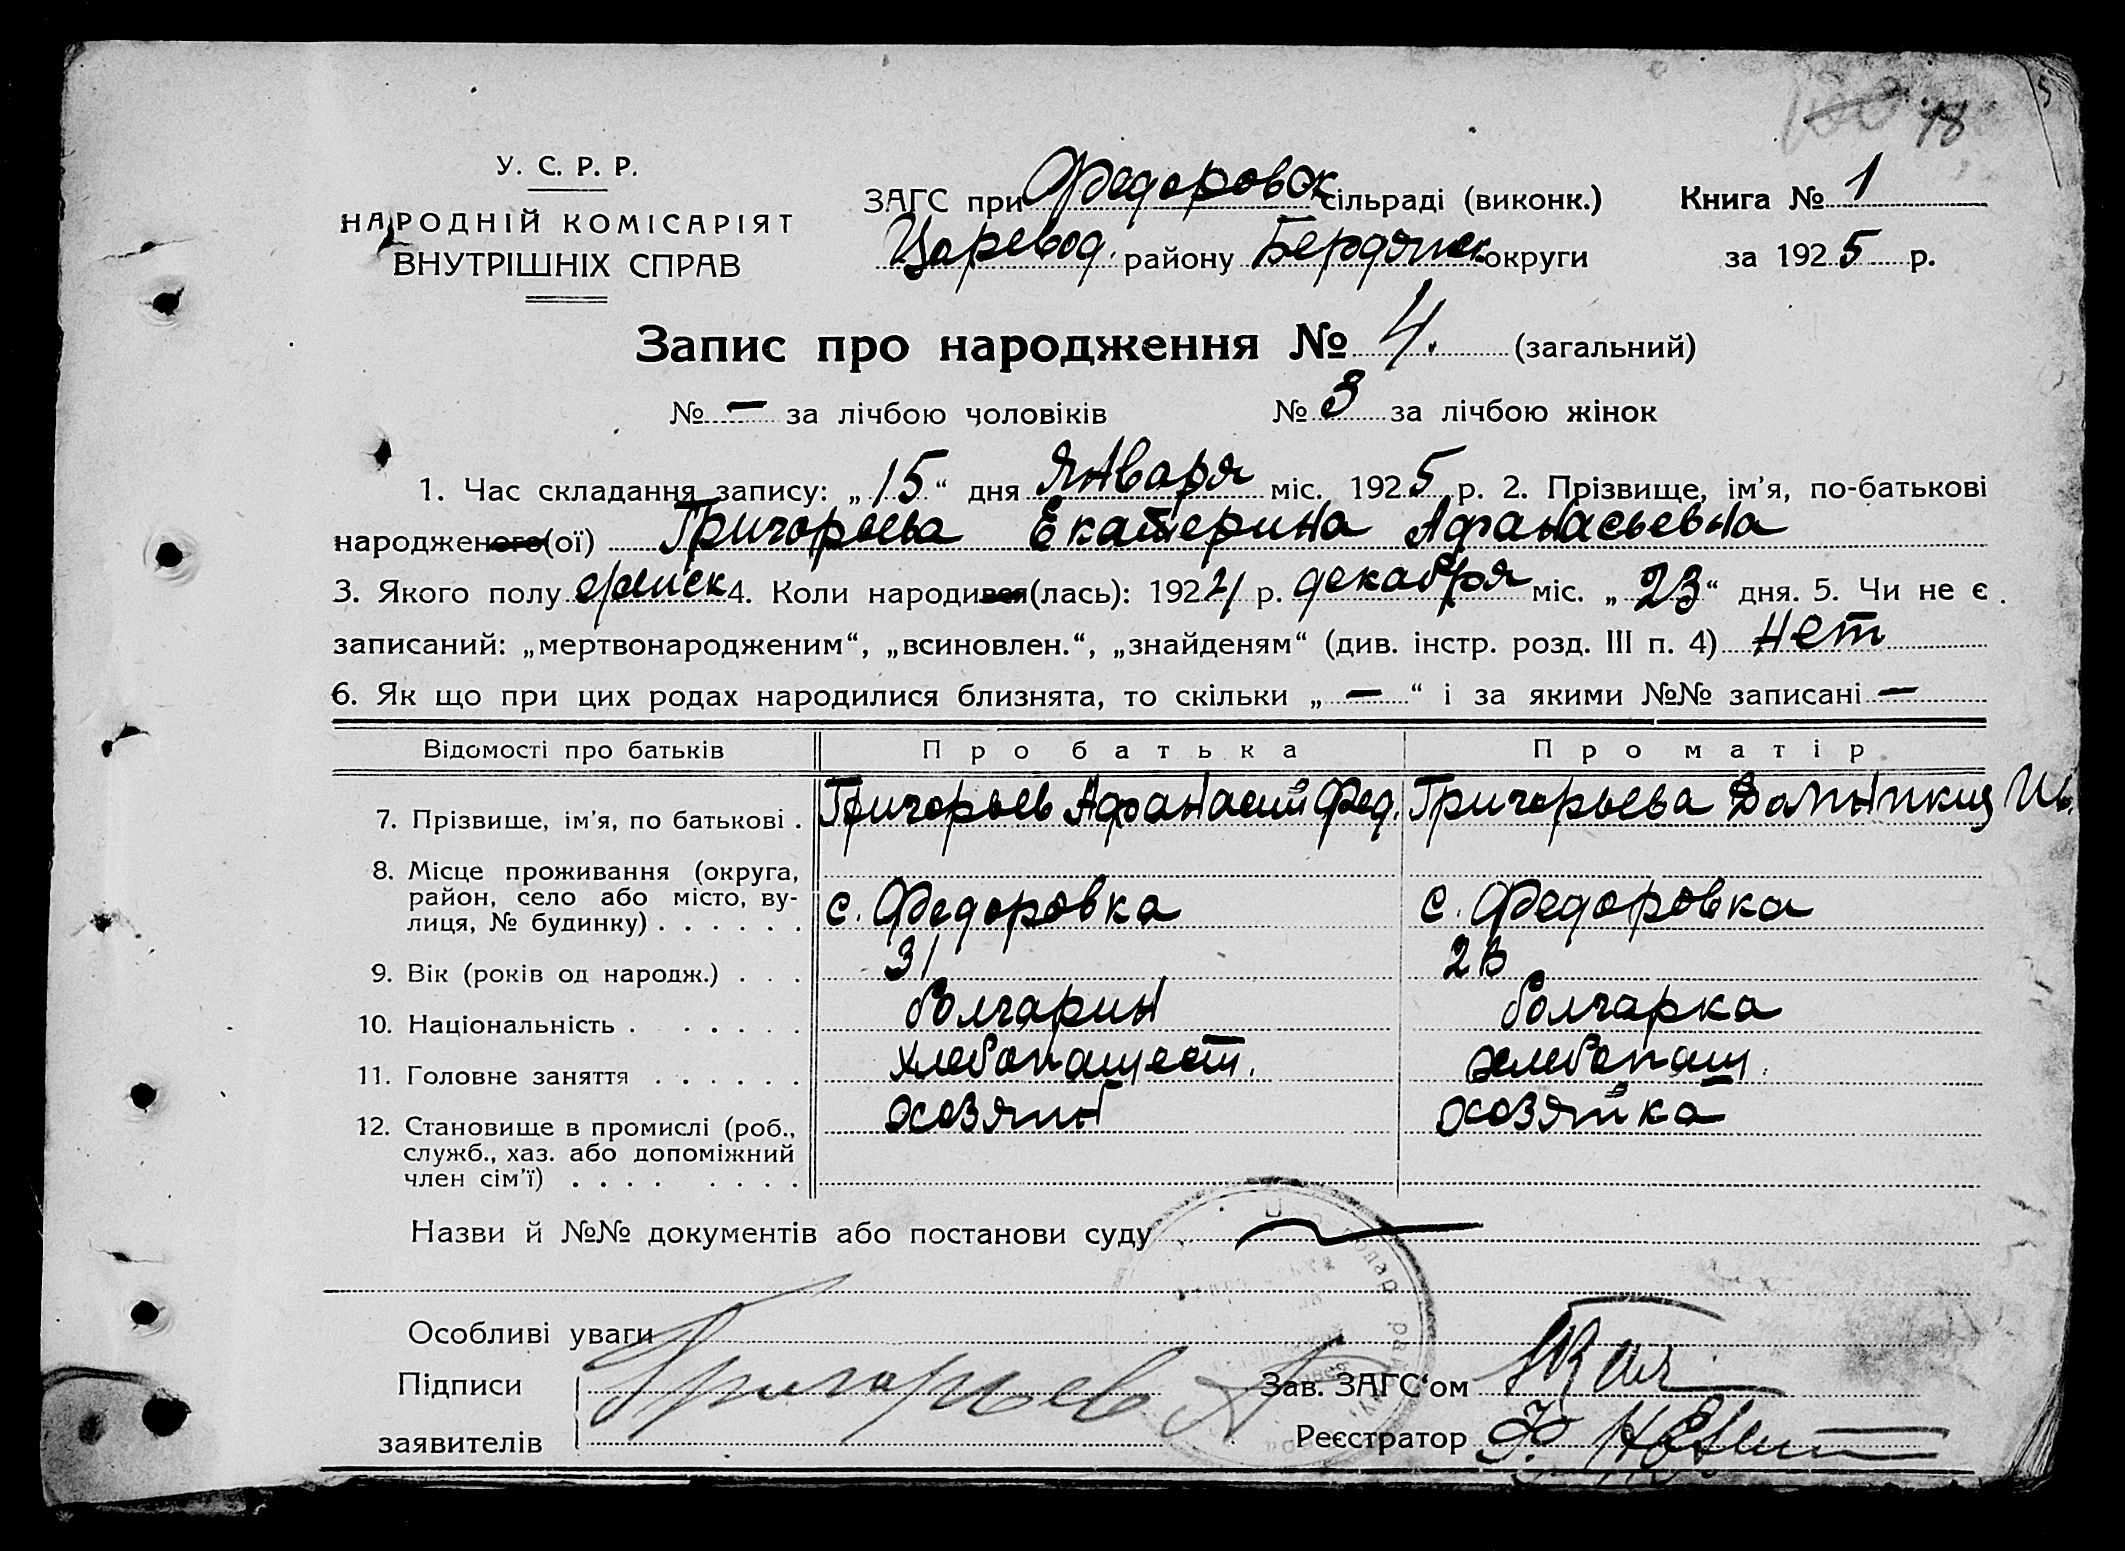 18
У. С. Р. Р.
НАРОДНІЙ КОМІСАРІЯТ
ВНУТРІШНІХ СПРАВ
ЗАГС при Федоровск сільраді (виконк.) Книга № 1
Царевод. району Бердянск округи за 1925 р.
Запис про народження № 4. (загальний)
№ — за лічбою чоловіків № 3 за лічбою жінок
1. Час складання запису: „15“ дня Января міс. 1925 р. 2. Прізвище, ім’я, по-батькові
народженого(ої) Григорьева Екатерина Афанасьевна
3. Якого полу женск 4. Коли народився(лась): 1924 р. декабря міс. „23“ дня. 5. Чи не є
записаний: „мертвонародженим“, „всиновлен.“, „знайденям“ (див. інстр. розд. III п. 4) Нет
6. Як що при цих родах народилися близнята, то скільки „—“ і за якими №№ записані —
Відомості про батьків Про батька Про матір
7. Прізвище, ім’я, по батькові . Григорьев Афанасий Фед. Григорьева
8. Місце проживання (округа,
район, село або місто, ву-
лиця, № будинку) . . . . . . с. Федоровка с. Федоровка
9. Вік (років од народж.) . . . 31 23
10. Національність . . . . . . болгарин болгарка
11. Головне заняття . . . . . . хлебопашест. хлебопаш.
12. Становище в промислі (роб., хозяин хозяйка
служб., хаз. або допоміжний
член сім’ї) . . . . . . . .
Назви й №№ документів або постанови суду
Особливі уваги
Підписи Григорьев А Зав. ЗАГС‘ом
заявителів Реєстратор